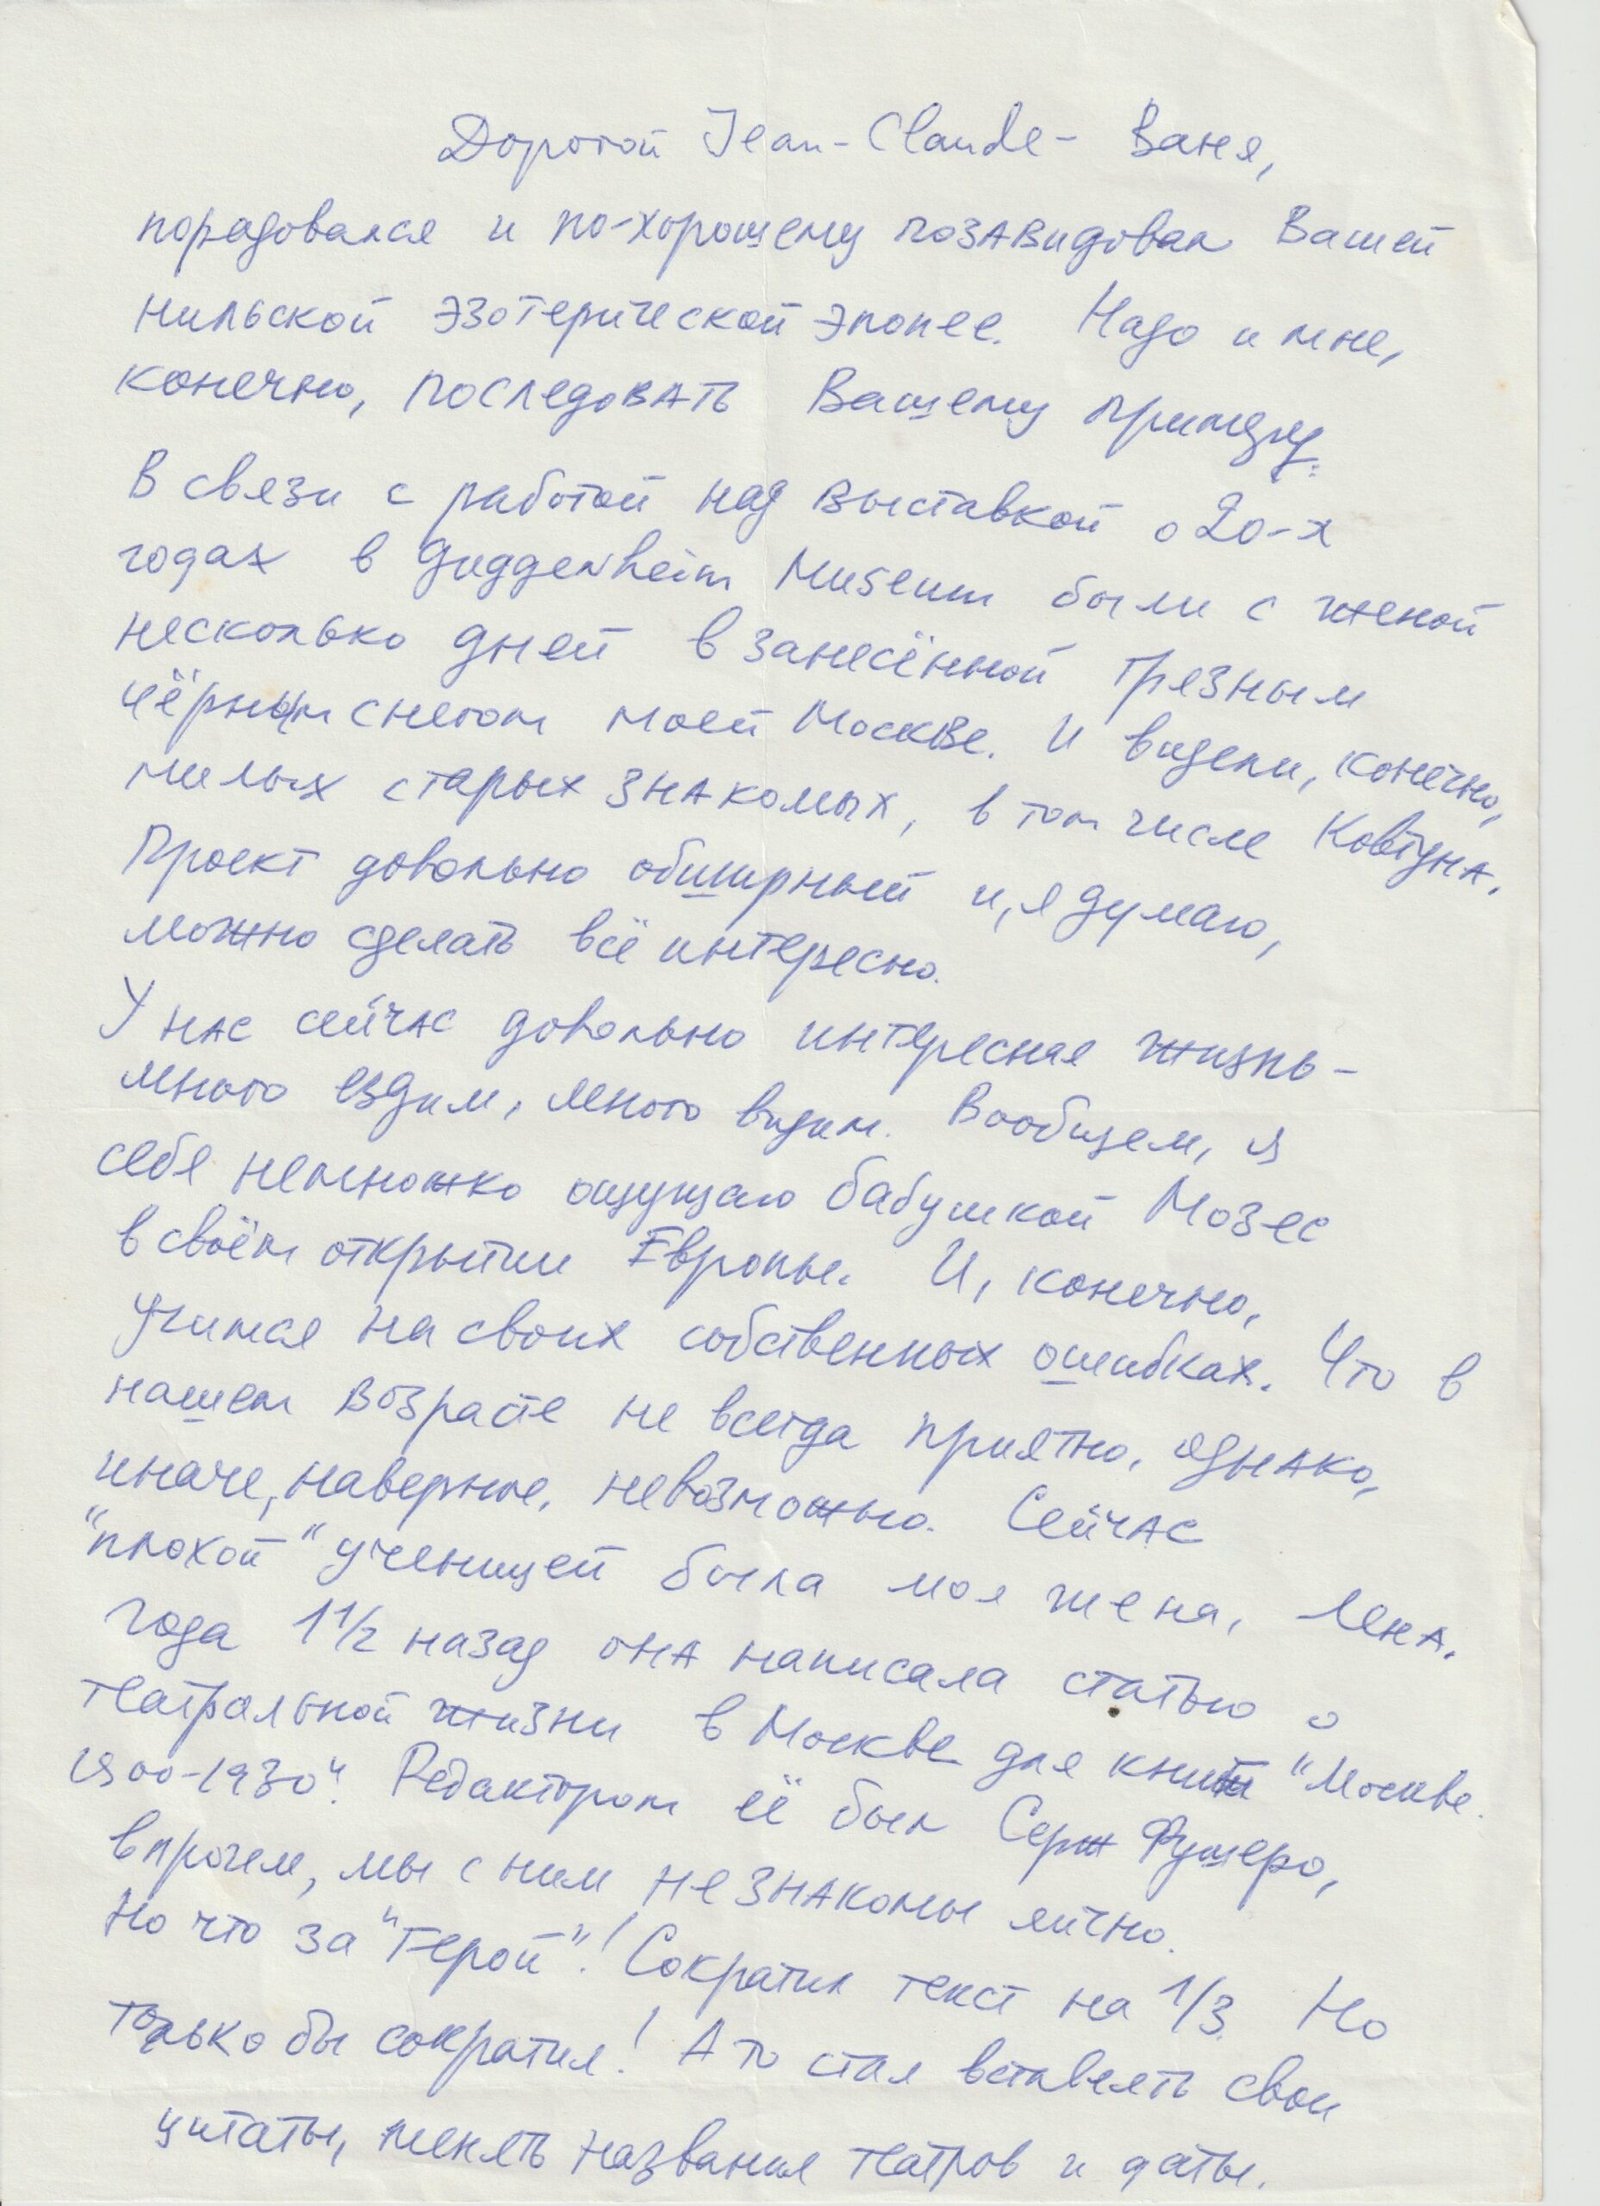 Дорогой Jean-Claude - Ваня,
порадовался и по-хорошему позавидовал Вашей
нильской эзотерической эпопее. Надо и мне,
конечно, последовать Вашему примеру.
В связи с работой над выставкой о 20-х
годах в Guggenheim Museum были с женой
несколько дней в занесённой грязным
чёрным снегом моей Москве. И видели, конечно,
милых старых знакомых, в том числе Ковтуна.
Проект довольно обширный и, я думаю,
можно сделать всё интересно.
У нас сейчас довольно интересная жизнь -
много ездим, много видим. Вообщем, я
себя немножко ощущаю бабушкой Мозес
в своём открытии Европы. И, конечно,
учимся на своих собственных ошибках. Что в
нашем возрасте не всегда приятно, однако,
иначе, наверное, невозможно. Сейчас
"плохой" ученицей была моя жена, Лена.
Года 1 1/2 назад она написала статью о
театральной жизни в Москве для книги "Москва
1900-1930". Редактором её был Серж Фушеро,
впрочем, мы с ним не знакомы лично.
Но что за "Герой"! Сократил текст на 1/3. Но
только бы сократил! А то стал вставлять свои
цитаты, менять названия театров и даты.